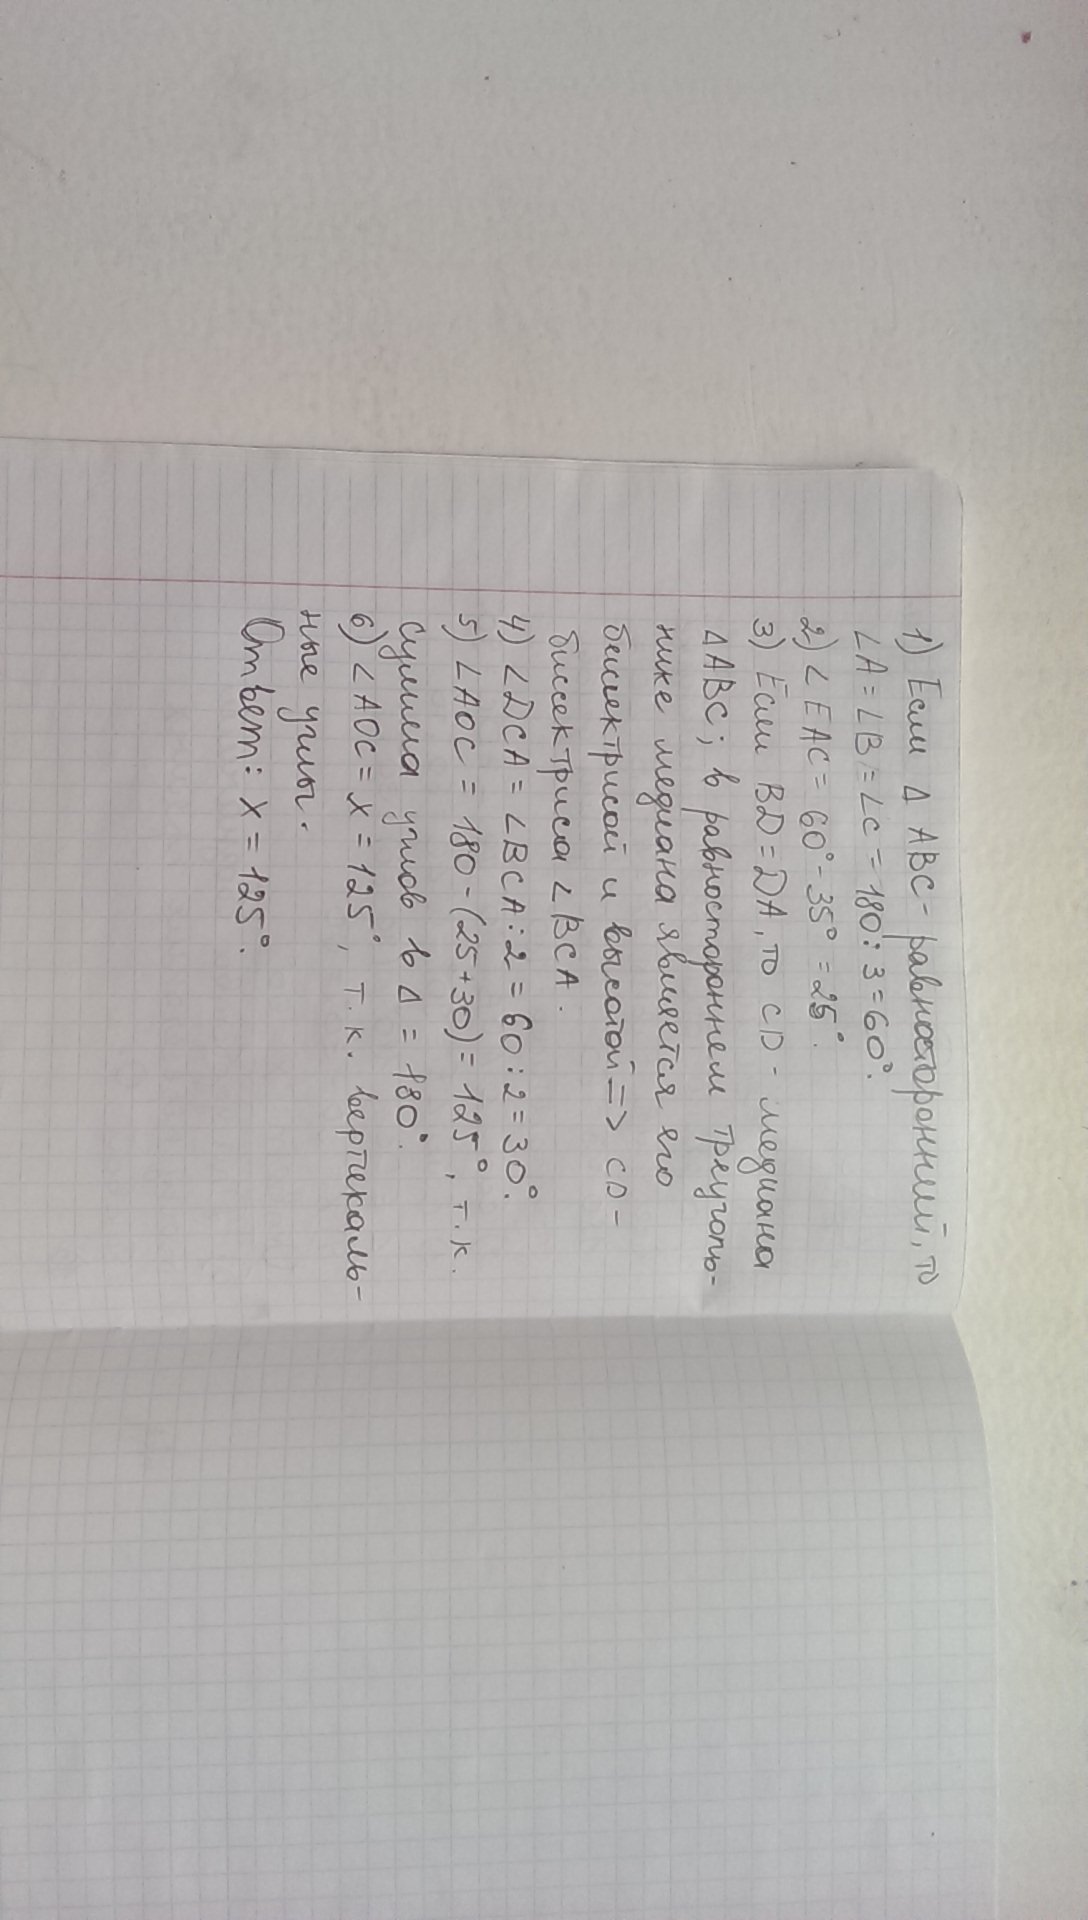 1) Если Δ ABC - равносторонний, то
∠A = ∠B = ∠C = 180 : 3 = 60°.
2) ∠EAC = 60° - 35° = 25°.
3) Если BD = DA, то CD - медиана
ΔABC; в равностороннем треуголь-
нике медиана является его
биссектрисой и высотой => CD -
биссектриса ∠BCA.
4) ∠DCA = ∠BCA : 2 = 60 : 2 = 30°.
5) ∠AOC = 180 - (25 + 30) = 125°, т.к.
сумма углов в Δ = 180°.
6) ∠AOC = x = 125°, т.к. вертикаль-
ные углы.
Ответ: x = 125°.